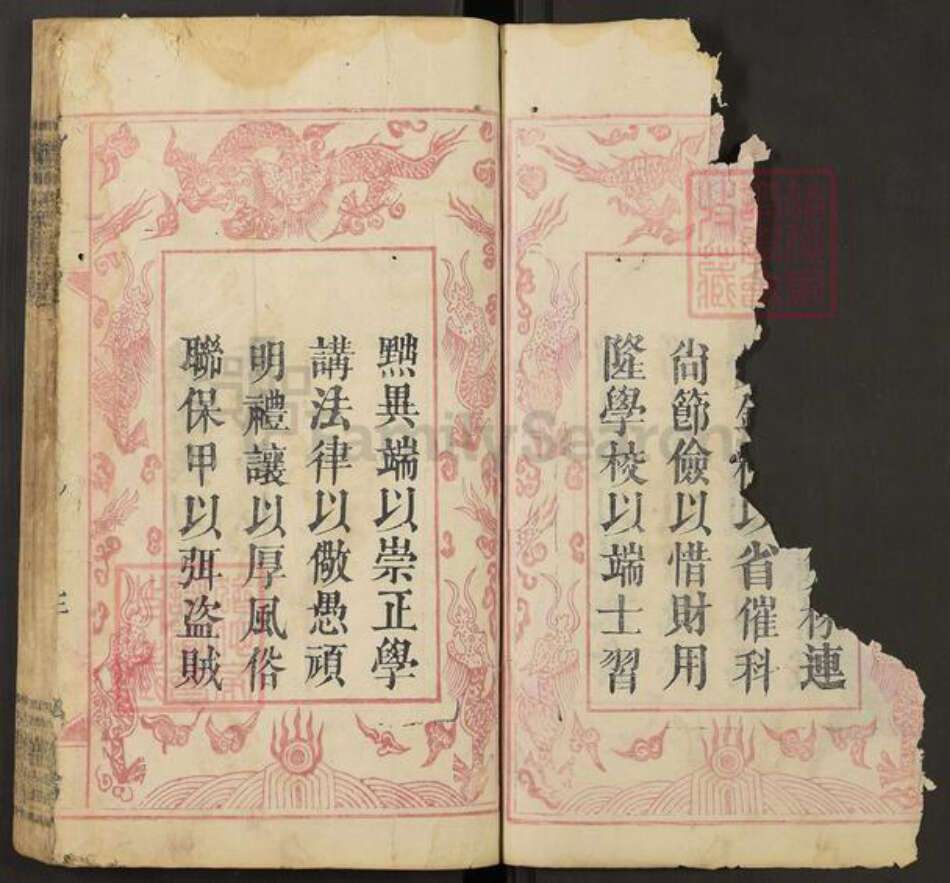 連
以省催科
尚節儉以惜財用
隆學校以端士習
黜異端以崇正學
講法律以儆愚頑
明禮讓以厚風俗
聯保甲以弭盜賊
FamilySearch